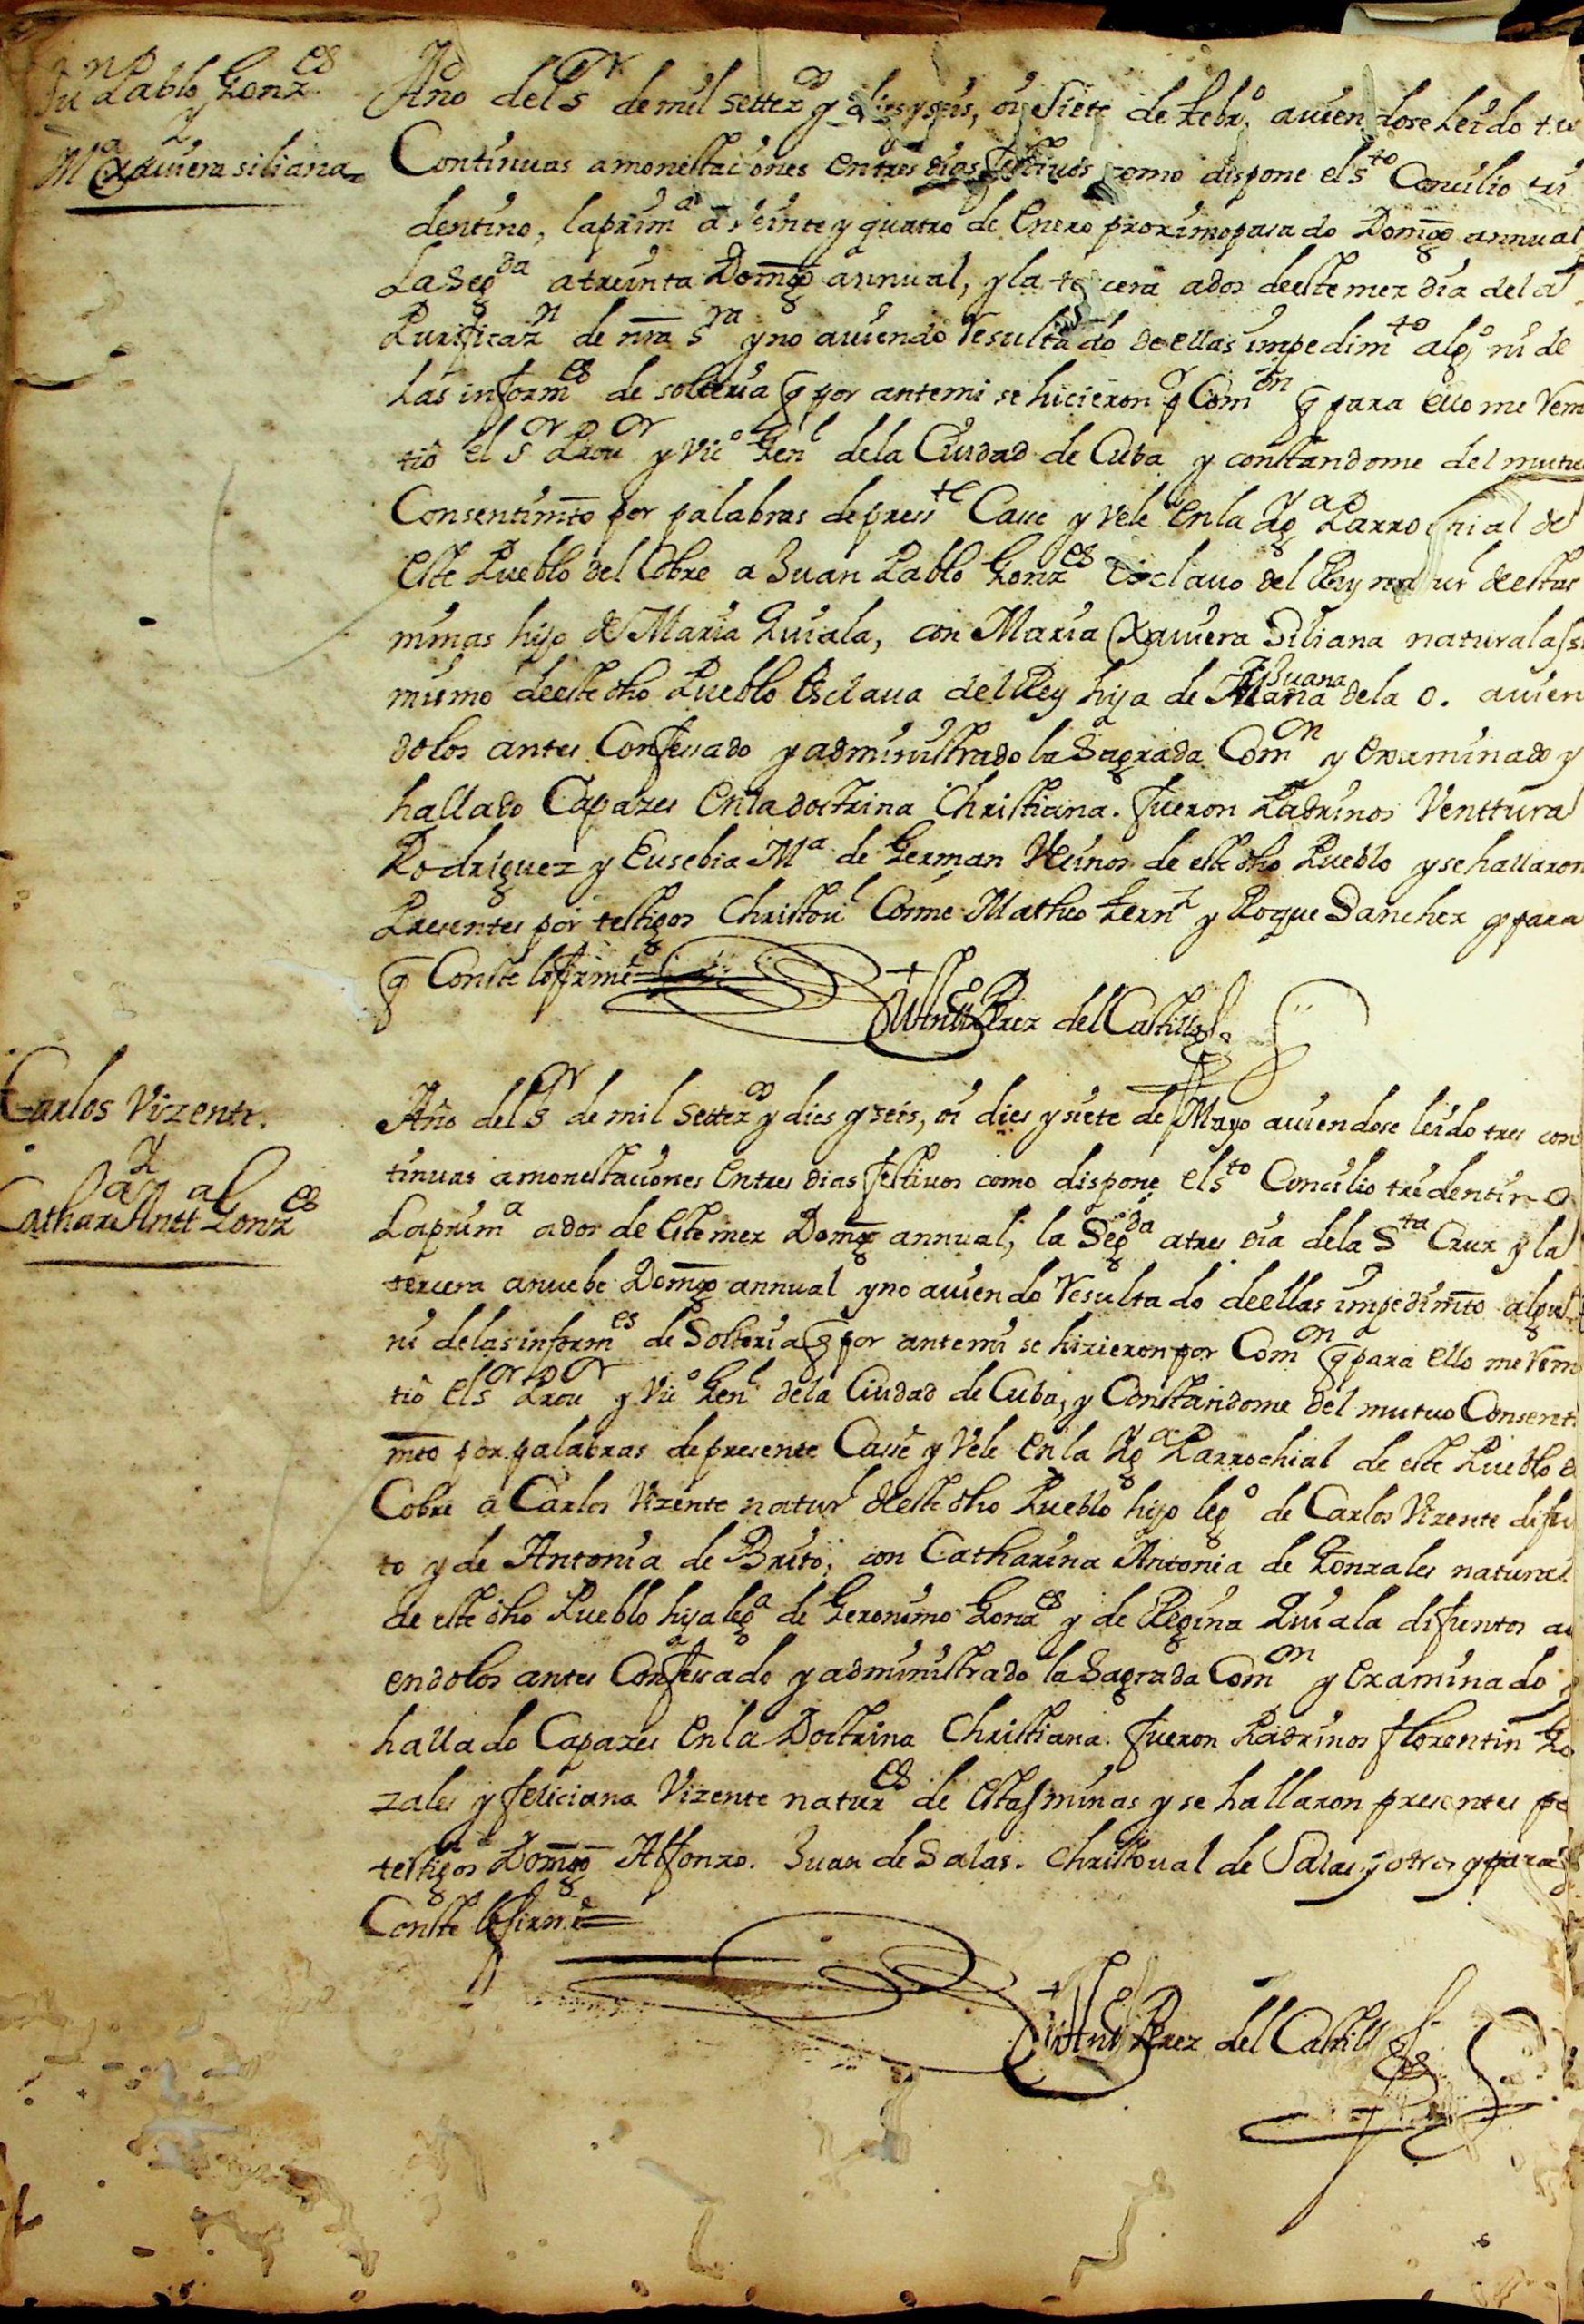 Jun Pablo Gonzes
y
Ma Xaviera siliana
Año del Sor de mil settezos y dies y seis, oi Siete de Febro. auiendose leido tres
Continuas amonestaciones en tres dias festiuos como dispone el sto Concilio tri
dentino, la prima a veinte y quatro de Enero proximo pasado Domgo annual
La Segda a treinta Domgo annual, y la tercera a dos de este mez dia de la
Purificazn de nra Sra y no auiendo resultado de ellas impedimto algo ni de
las informes de solteria q por ante mi se hicieron p Comon q para ello me remi
tio el Sor Prouor y Vico Genl de la Ciudad de Cuba y constandome del mutuo
Consentimto por palabras de preste Casse y vele en la Yga Parrochial de
este Pueblo del Cobre a Juan Pablo Gonzes Esclauo del Rey naturl de estas
minas hijo de Maria Quiala, con Maria Xauiera Siliana natural assi
mismo de este dho Pueblo Esclaua del Rey hija de Maria Juana de la O. auien
dolos antes Confessado y administrado la Sagrada Comon y examinado y
hallado Capazes en la doctrina Christiana. fueron Padrinos Venttura
Rodriguez y Eusebia Ma de German Vezinos de este dho Pueblo y se hallaron
Presentes por testigos Christoul Cosme Matheo Fernz y Roque Sanchez y para
q Conste lo firmé
Antt Perez del Castillo
Carlos Vizente.
y
Cathara Antta Gonzes
Año del Sor de mil settezos y dies y seis, oi dies y siete de Mayo auiendose leido tres con
tinuas amonestaciones en tres dias festiuos como dispone el sto Concilio tridentino
La prima a dos de este mez Domgo annual, la Segda a tres dia de la Sta Cruz y la
tercera a nuebe Domgo annual y no auiendo resultado de ellas impedimto algu
ni de las informes de Solteria q por ante mi se hizieron por Comon q para ello me remi
tio el Sor Prouor y Vico Genl de la Ciudad de Cuba, y Constandome del mutuo Consenti
mto por palabras de presente Casse y Vele en la Yga Parrochial de este Pueblo d
Cobre a Carlos Vizente naturl de este dho Pueblo hijo lego de Carlos Vizente difun
to y de Antonia de Brito; con Catharina Antonia de Gonzales natural
de este dho Pueblo hija lega de Geronimo Gonzes y de Regina Quiala difuntos aui
endolos antes Confessado y administrado la Sagrada Comon y examinado y
hallado Capazes en la Doctrina Christiana. fueron Padrinos Florentin Go
zales y feliciana Vizente natures de estas minas y se hallaron presentes po
testigos Domgo Alfonzo. Juan de Salas. Christoual de Salas y otros y para q
Conste lo firmé
Antt Perez del Castillo